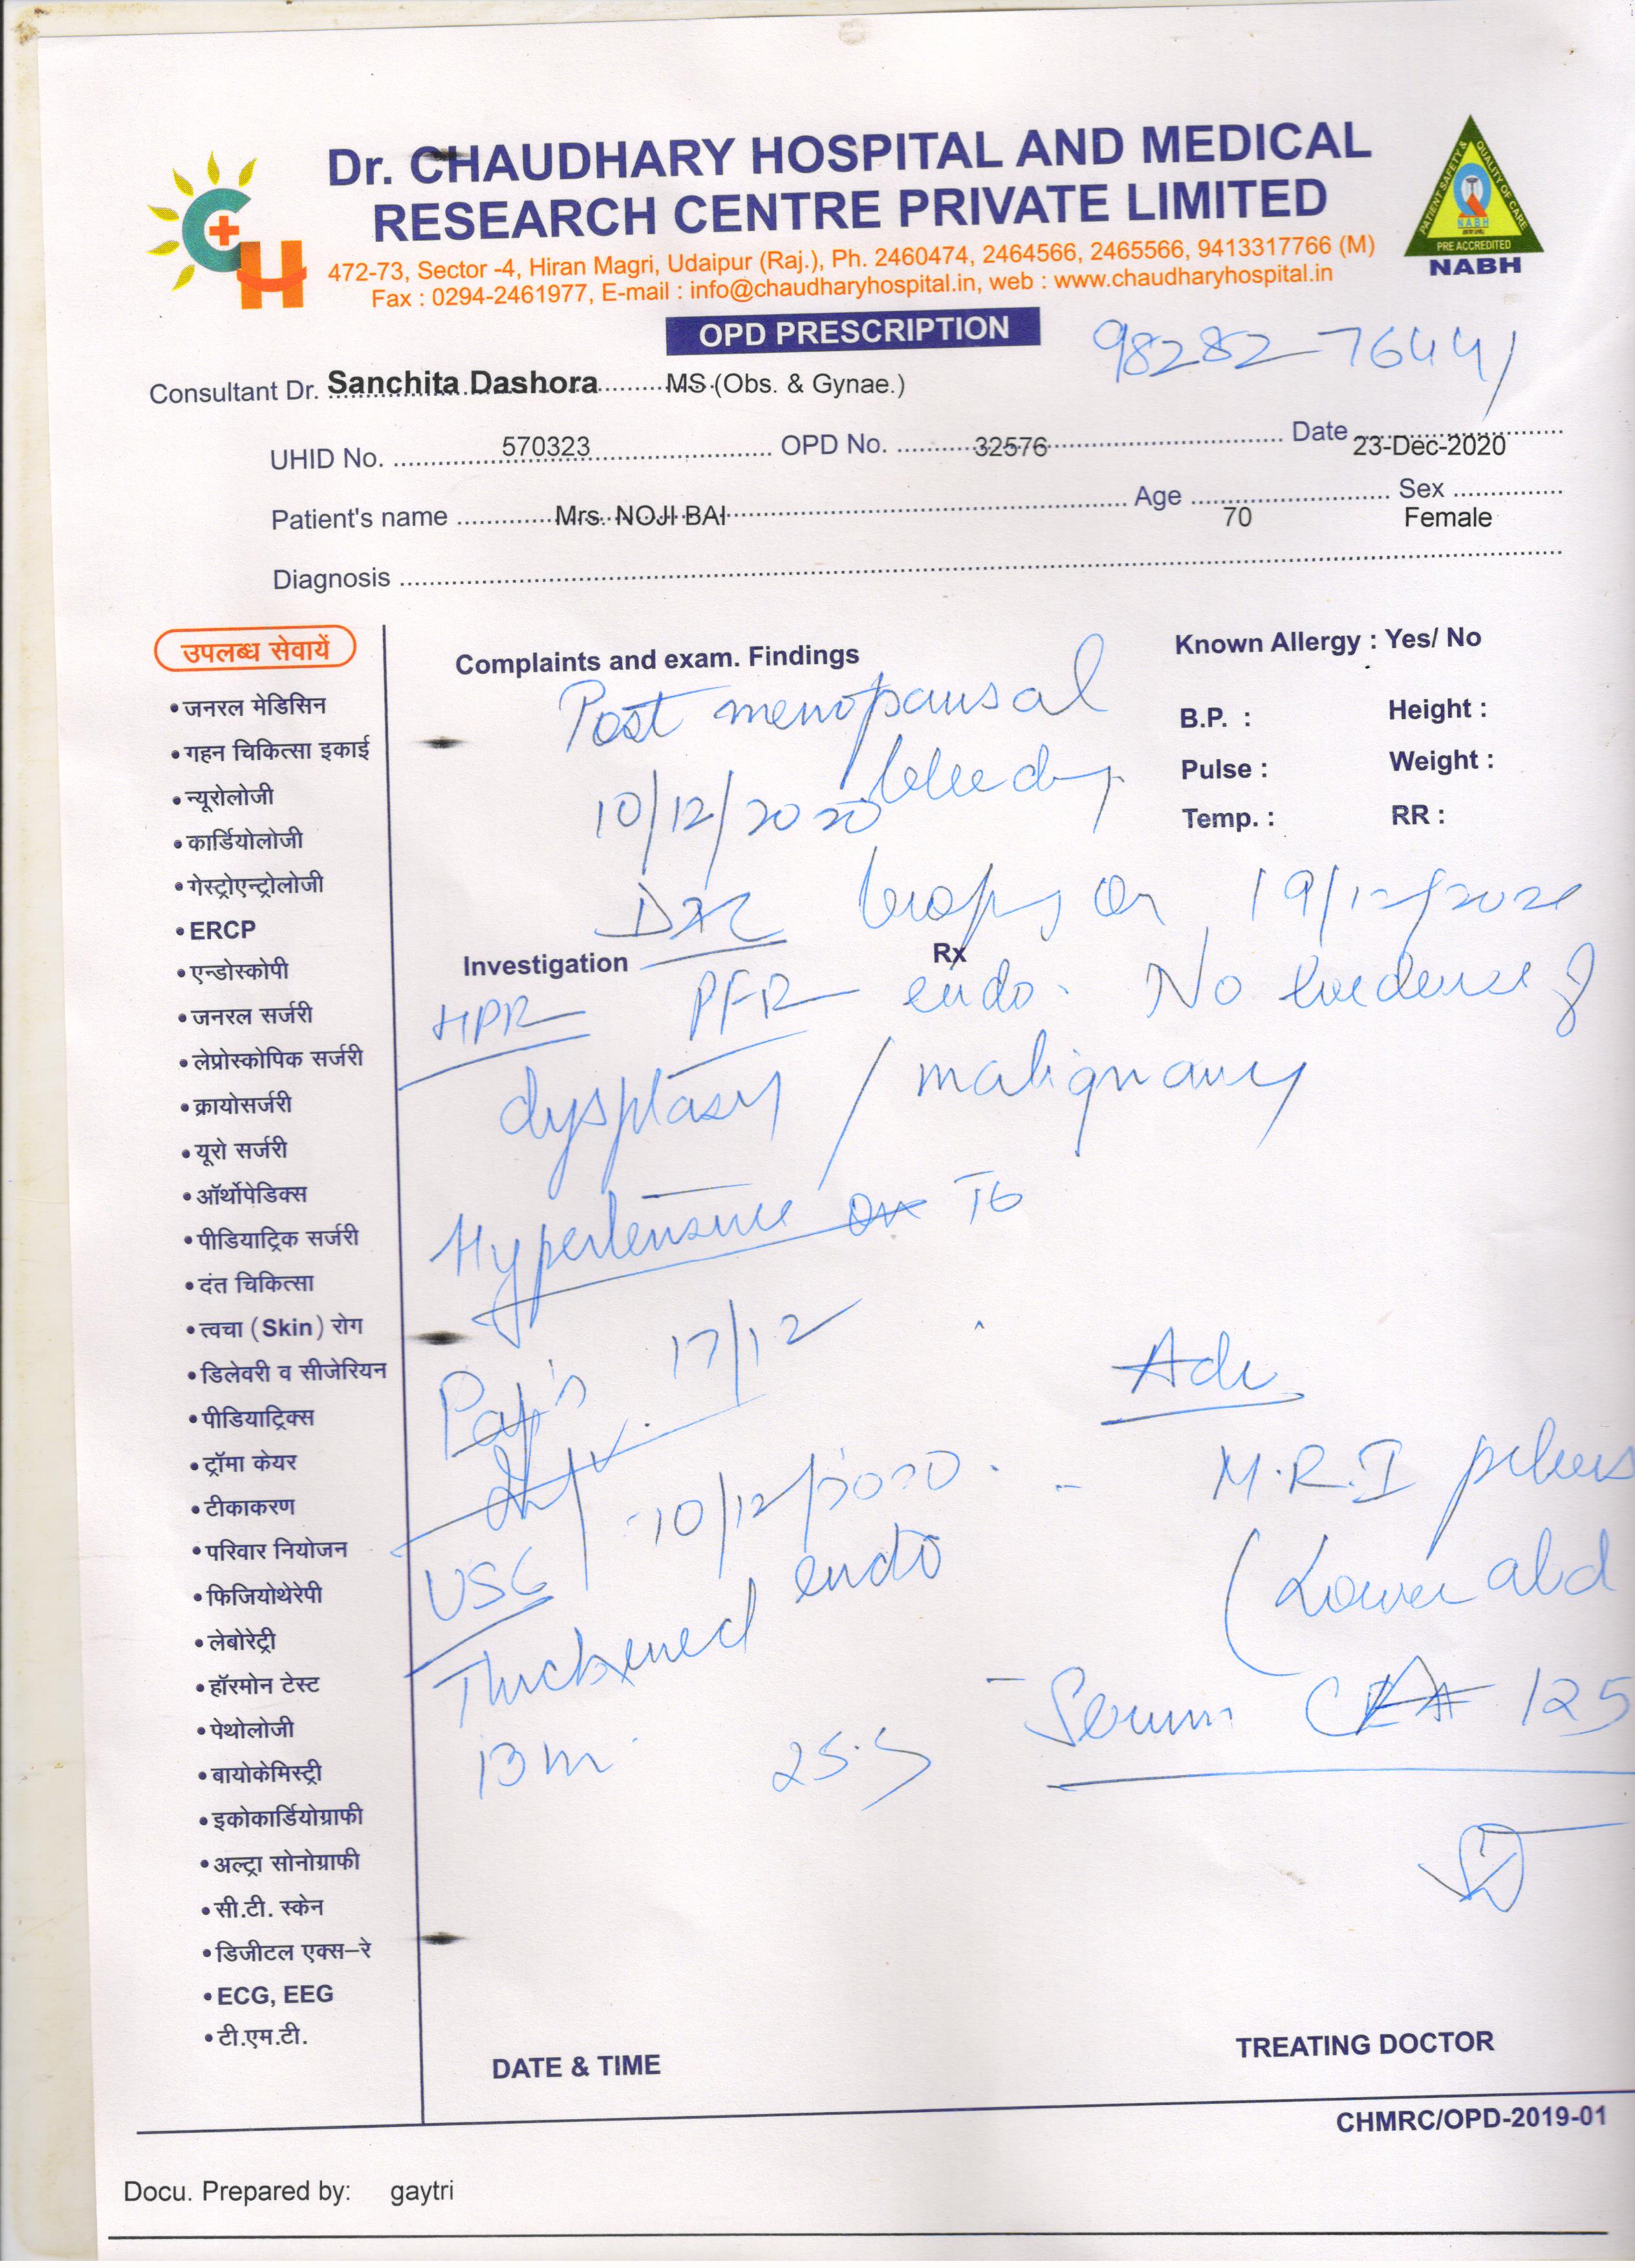 Dr. CHAUDHARY HOSPITAL AND MEDICAL
RESEARCH CENTRE PRIVATE LIMITED
472-73, Sector -4, Hiran Magri, Udaipur (Raj.), Ph. 2460474, 2464566, 2465566, 9413317766 (M)
Fax : 0294-2461977, E-mail : info@chaudharyhospital.in, web : www.chaudharyhospital.in
PATIENT SAFETY & QUALITY OF CARE
NABH
PRE ACCREDITED
NABH
OPD PRESCRIPTION
98282-76441
Consultant Dr. Sanchita Dashora MS (Obs. & Gynae.)
UHID No. 570323 OPD No. 32576 Date 23-Dec-2020
Patient's name Mrs. NOJI BAI Age 70 Sex Female
Diagnosis
उपलब्ध सेवायें
• जनरल मेडिसिन
• गहन चिकित्सा इकाई
• न्यूरोलोजी
• कार्डियोलोजी
• गेस्ट्रोएन्ट्रोलोजी
• ERCP
• एन्डोस्कोपी
• जनरल सर्जरी
• लेप्रोस्कोपिक सर्जरी
• क्रायोसर्जरी
• यूरो सर्जरी
• ऑर्थोपेडिक्स
• पीडियाट्रिक सर्जरी
• दंत चिकित्सा
• त्वचा (Skin) रोग
• डिलेवरी व सीजेरियन
• पीडियाट्रिक्स
• ट्रॉमा केयर
• टीकाकरण
• परिवार नियोजन
• फिजियोथेरेपी
• लेबोरेट्री
• हॉरमोन टेस्ट
• पेथोलोजी
• बायोकेमिस्ट्री
• इकोकार्डियोग्राफी
• अल्ट्रा सोनोग्राफी
• सी.टी. स्केन
• डिजीटल एक्स-रे
• ECG, EEG
• टी.एम.टी.
Complaints and exam. Findings
Known Allergy : Yes/ No
B.P. : Height :
Pulse : Weight :
Temp. : RR :
Post menopausal
bleeding
10/12/2020
D&C biopsy on 19/12/2020
Investigation Rx
HPR endo. No evidence of
dysplasy / malignancy
Hypertensive on T6
Pap's 17/12
Adv
10/12/2020 - M.R.I pelvis
USG
Thickened endo (Lower abd
13 m 25.5
- Serum CA 125
DATE & TIME
TREATING DOCTOR
CHMRC/OPD-2019-01
Docu. Prepared by: gaytri